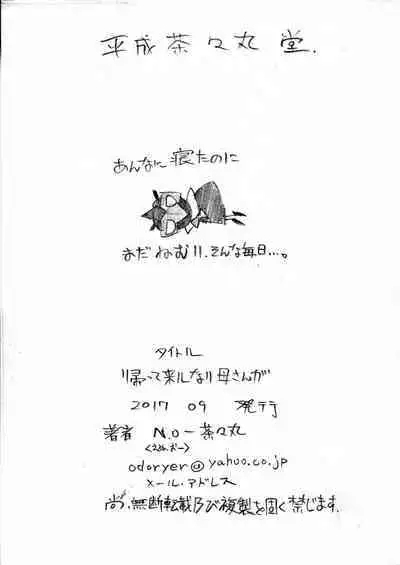 平成茶々丸堂.
あんなに寝たのに
まだねむいい、そんな毎日…。
タイトル
帰って来ルなり母さんが
2017 09 発行
著者 N.O－茶々丸
<えぬ.おー>
odoryer@yahoo.co.jp
メール.アドレス
尚、無断転載及び複製を固く禁じます.